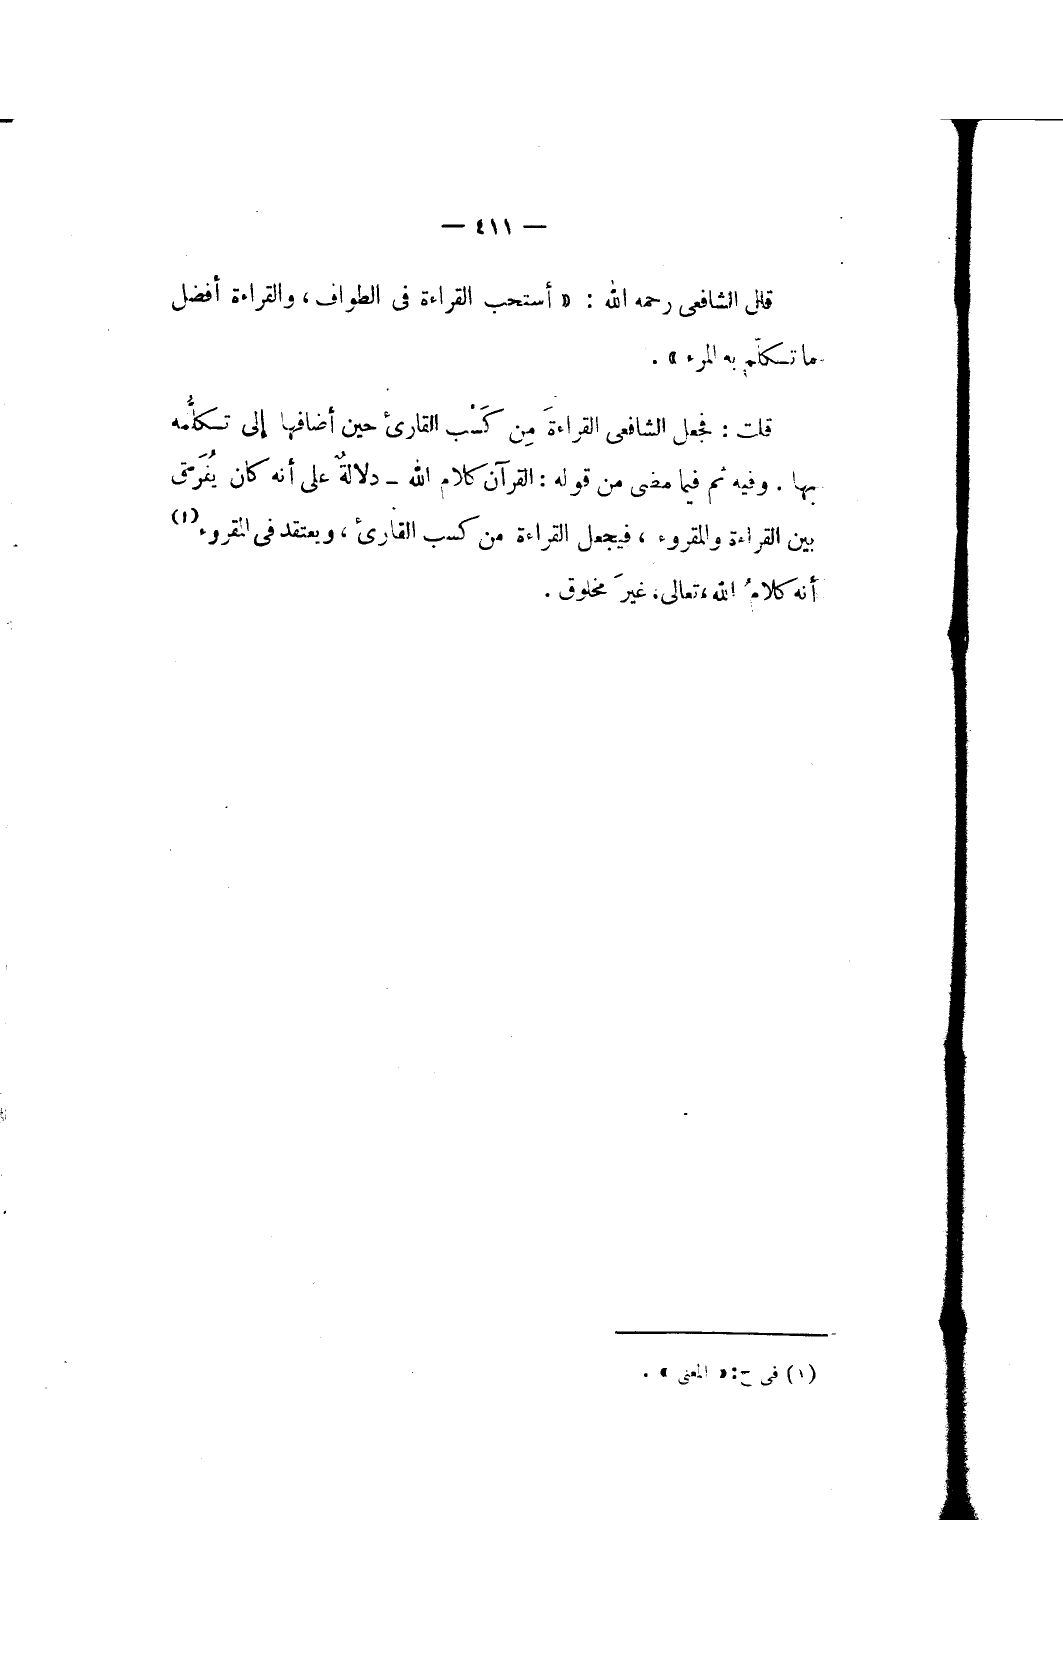 — ٤١١ —
قال الشافعى رحمه الله : « أستحب القراءة فى الطواف ، والقراءة أفضل
ما تكلّم به المرء » .
قلت : فجعل الشافعى القراءةَ مِن كَسْب القارئ حين أضافها إلى تكلُّمه
بها . وفيه ثم فيما مضى من قوله : القرآن كلام الله – دلالةٌ على أنه كان يُفَرِّق
بين القراءة والمقروء ، فيجعل القراءة من كسب القارئ ، ويعتقد فى المقروء(١)
أنه كلامُ الله ، تعالى ، غيرَ مخلوق .
(١) فى ح : « المعنى » .